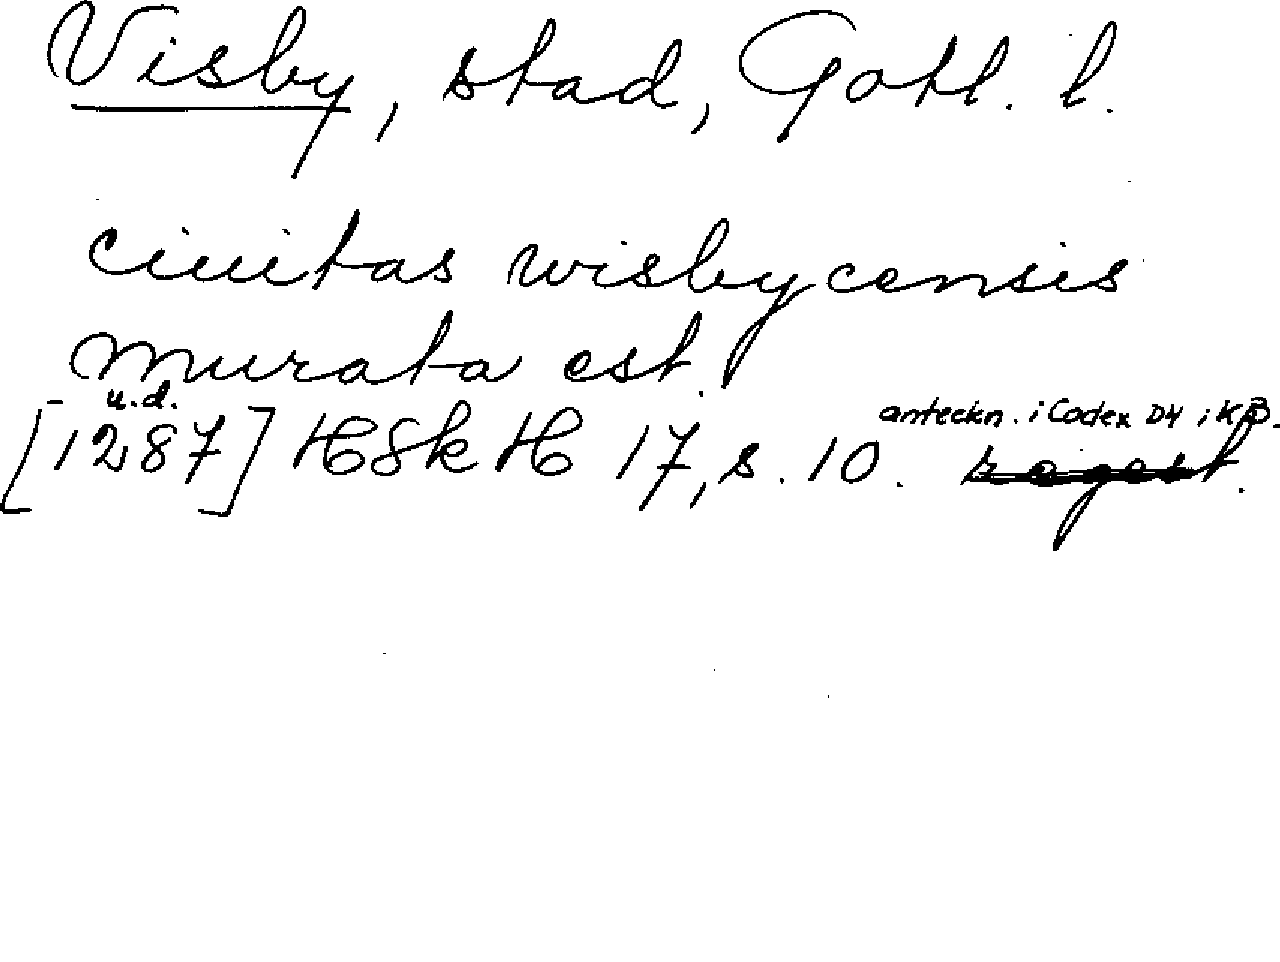 Visby, stad, Gotl. l.
ciuitas wisbycensis
murata est.
u.d.
[1287] HSkH 17, s. 10. regest.
anteckn. i Codex D4 i KB.